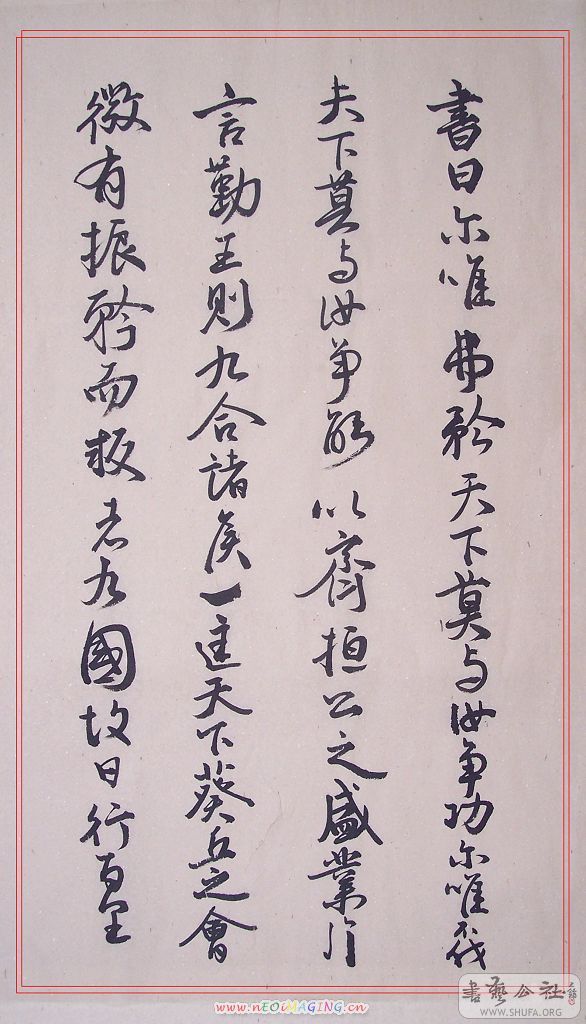 書曰尔唯弗矜天下莫与汝爭功尔唯不伐
天下莫与汝爭能以齊桓公之盛業片
言勤王則九合諸侯一匡天下葵丘之會
微有振矜而叛者九國故曰行百里
書藝公社
WWW.SHUFA.ORG
www.nEOiMAGING.cn